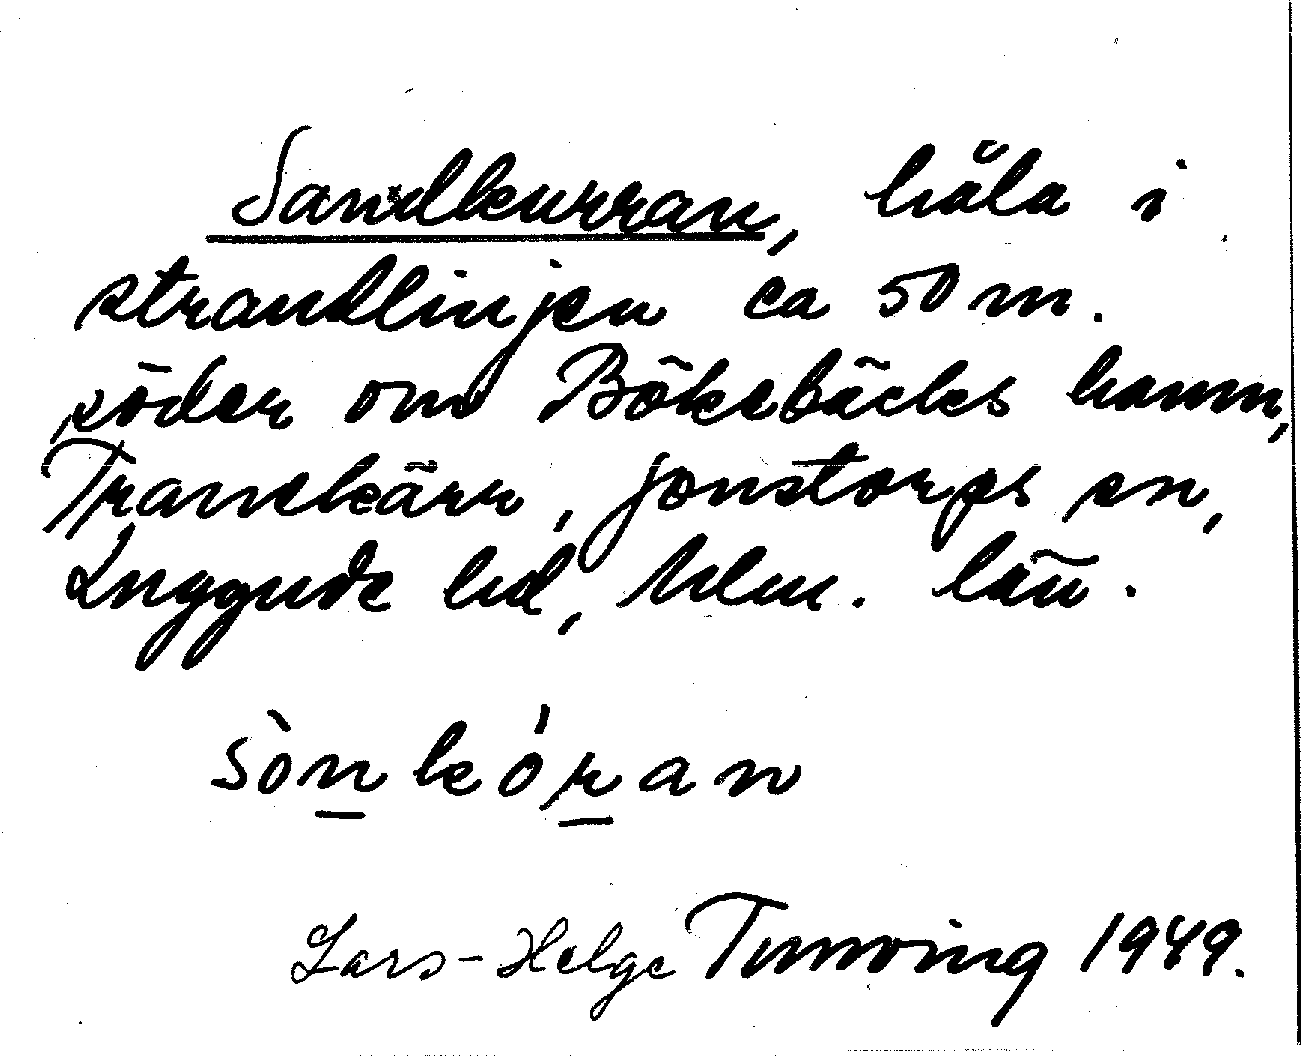 Sandkurran, håla i
strandlinjen ca 50 m.
söder om Bökebäcks hamn,
Tranekärr, Jonstorps sn,
Luggude hd, Mlm. län.
sònkóran
Lars-Helge Tunving 1949.